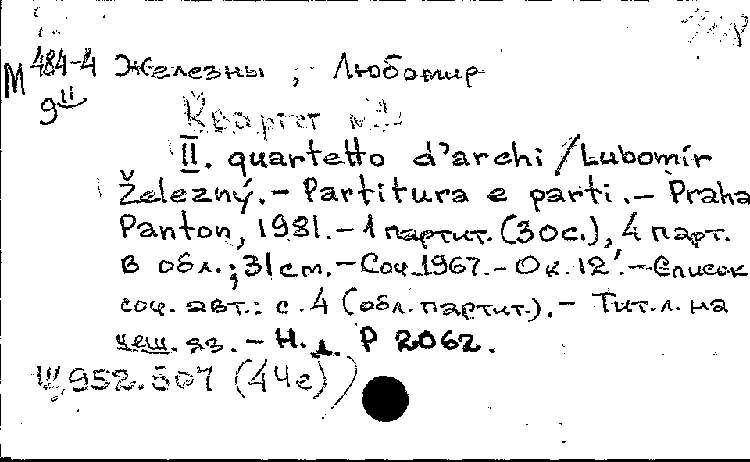 М 484-4 Железны, Любомир
9 II
Квартет №2
II. quartetto d'archi / Lubomír
Železný. - Partitura e parti. - Praha
Panton, 1981. - 1 партит. (30с.), 4 парт.
в обл.; 31 см. - Соч. 1967. - Ок. 12'. - Список
соч. авт.: с. 4 (обл. партит.). - Тит. л. на
чеш. яз. - Н. д. P 2062.
952.507 (44е)